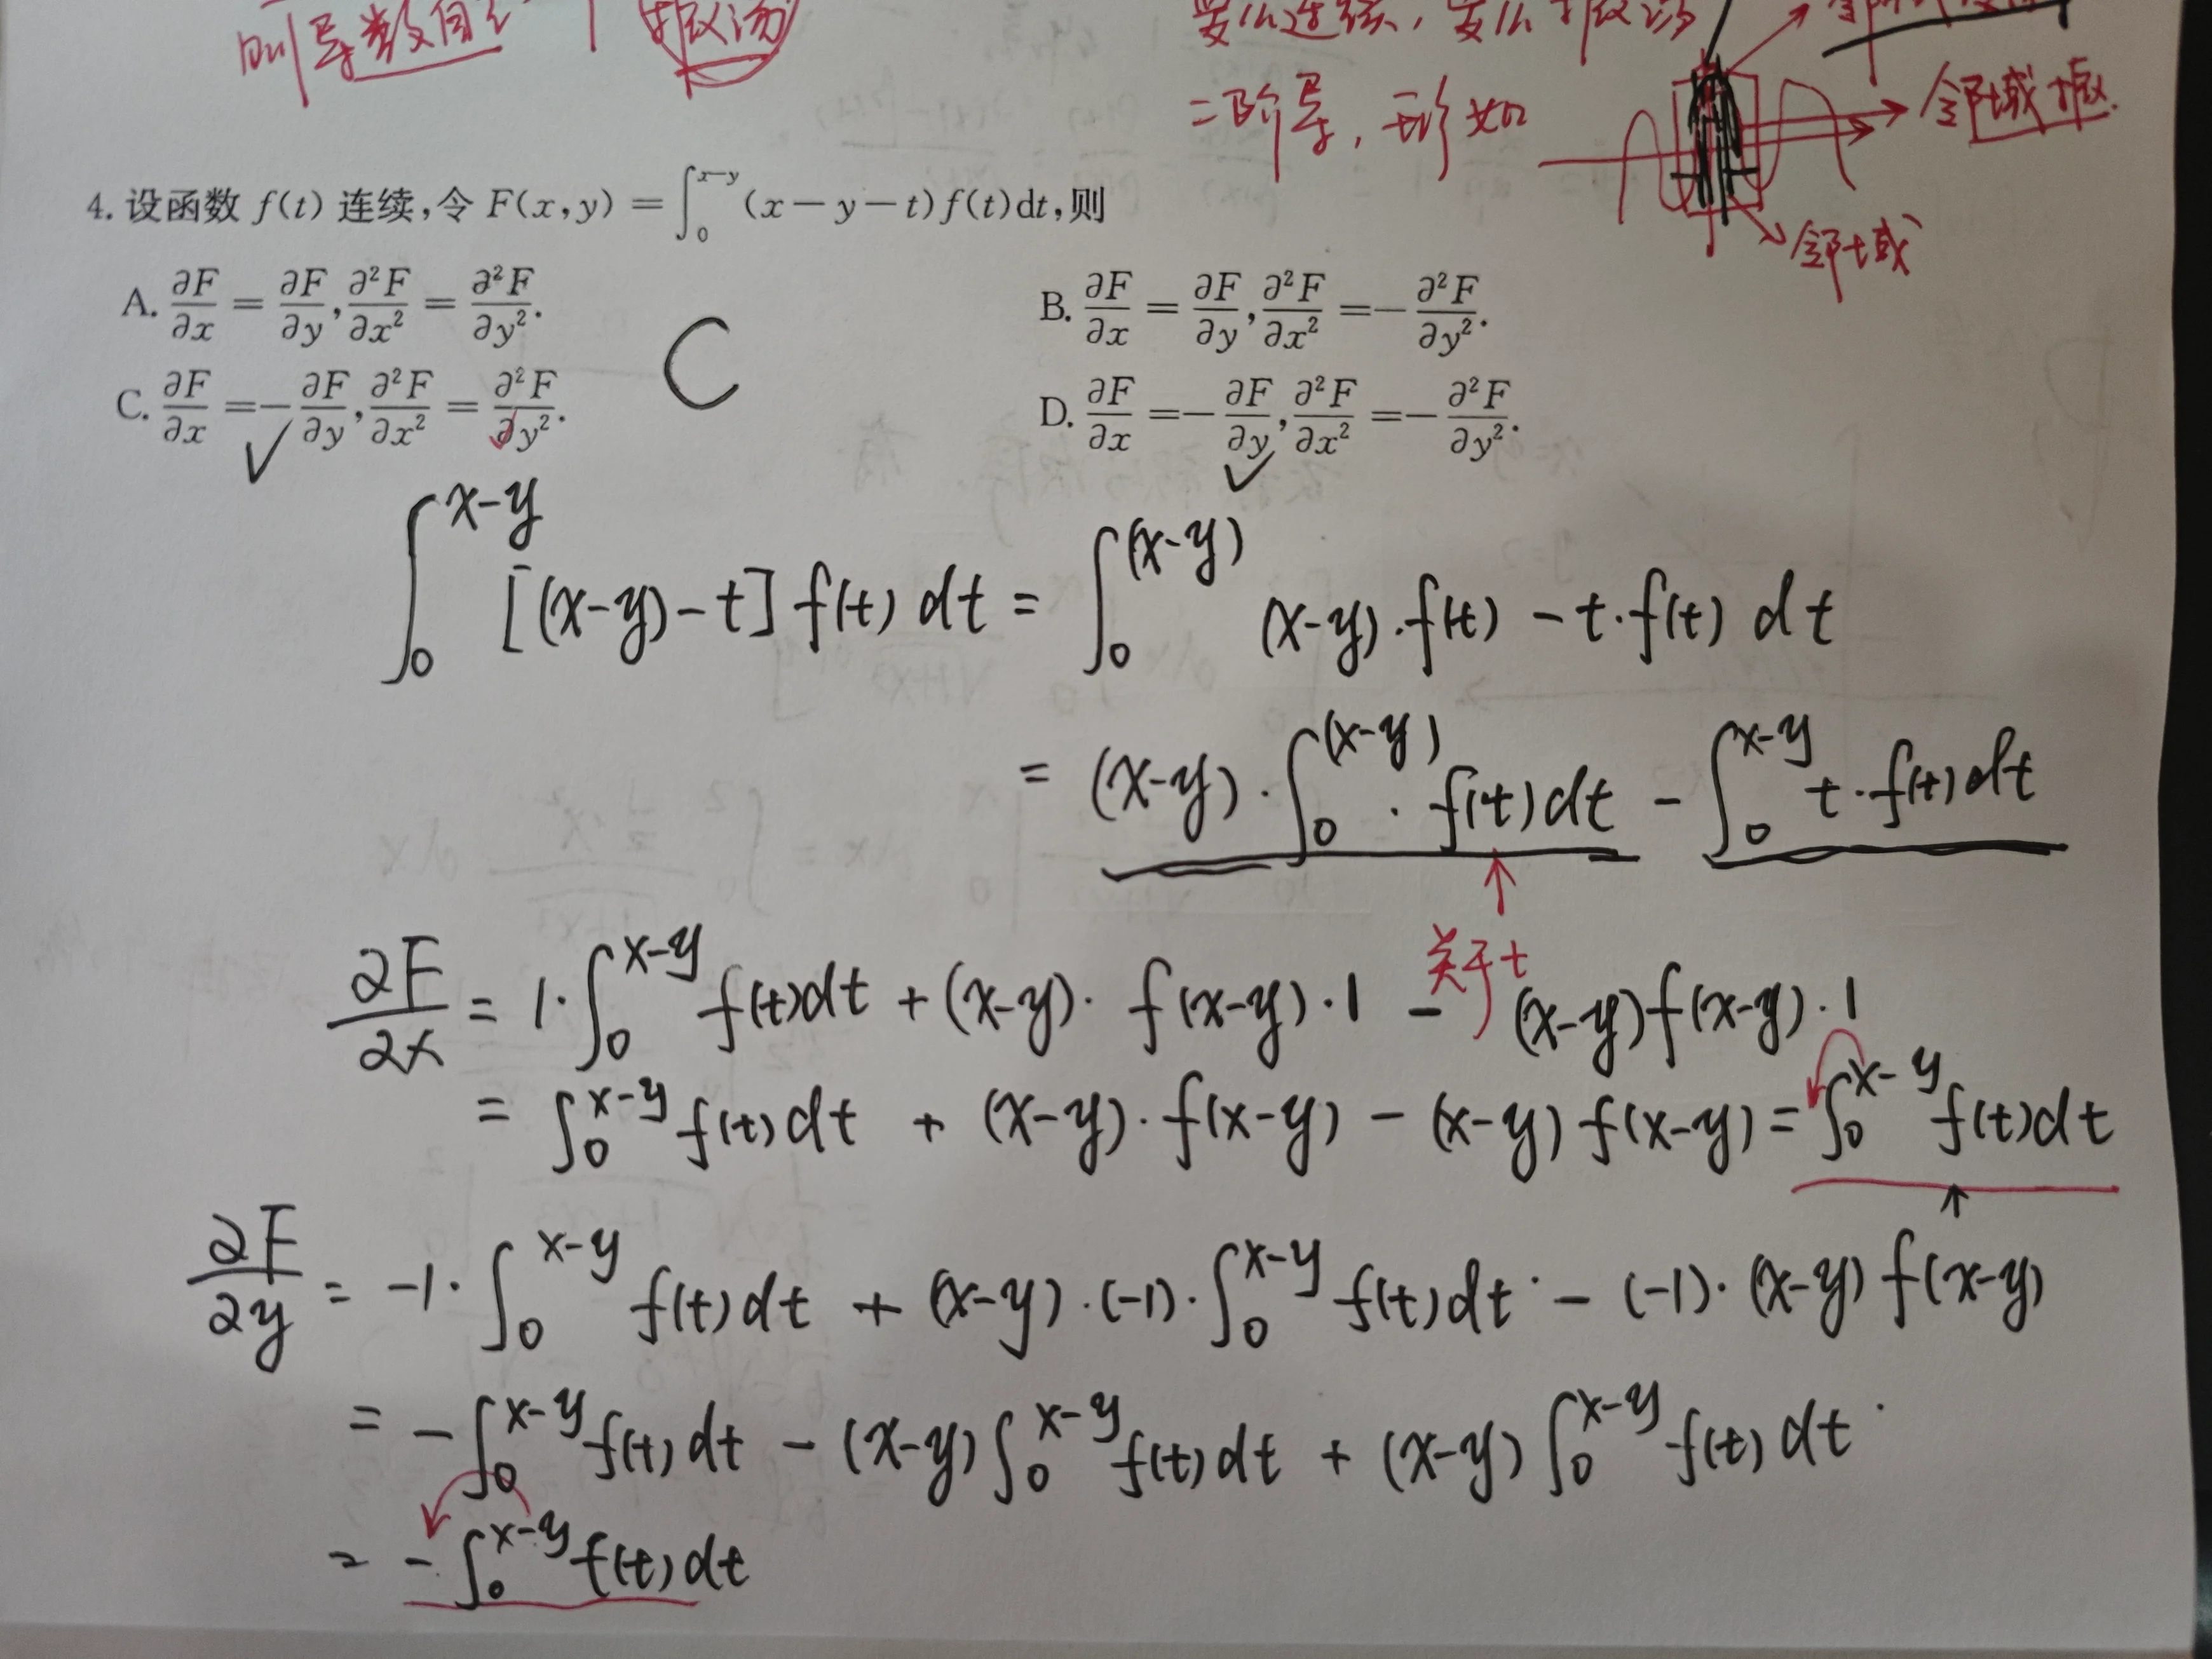 则导数自
振荡
要么连续,要么振荡
二阶导,形如
邻域振.
邻域
4. 设函数 f(t) 连续,令 F(x,y) = ∫₀^{x−y} (x−y−t)f(t)dt,则
A. ∂F/∂x = ∂F/∂y, ∂²F/∂x² = ∂²F/∂y².
B. ∂F/∂x = ∂F/∂y, ∂²F/∂x² = −∂²F/∂y².
C
C. ∂F/∂x = −∂F/∂y, ∂²F/∂x² = ∂²F/∂y².
D. ∂F/∂x = −∂F/∂y, ∂²F/∂x² = −∂²F/∂y².
∫₀^{x-y} [(x-y)-t] f(t) dt = ∫₀^{(x-y)} (x-y)·f(t) - t·f(t) dt
= (x-y)·∫₀^{(x-y)} · f(t)dt - ∫₀^{x-y} t·f(t)dt
关于t
∂F/∂x = 1·∫₀^{x-y} f(t)dt + (x-y)· f(x-y)·1 - (x-y)f(x-y)·1
= ∫₀^{x-y} f(t)dt + (x-y)·f(x-y) - (x-y)f(x-y) = ∫₀^{x-y} f(t)dt
∂F/∂y = -1·∫₀^{x-y} f(t)dt + (x-y)·(-1)·∫₀^{x-y} f(t)dt - (-1)·(x-y)f(x-y)
= -∫₀^{x-y} f(t)dt - (x-y)∫₀^{x-y} f(t)dt + (x-y)∫₀^{x-y} f(t)dt
= -∫₀^{x-y} f(t)dt